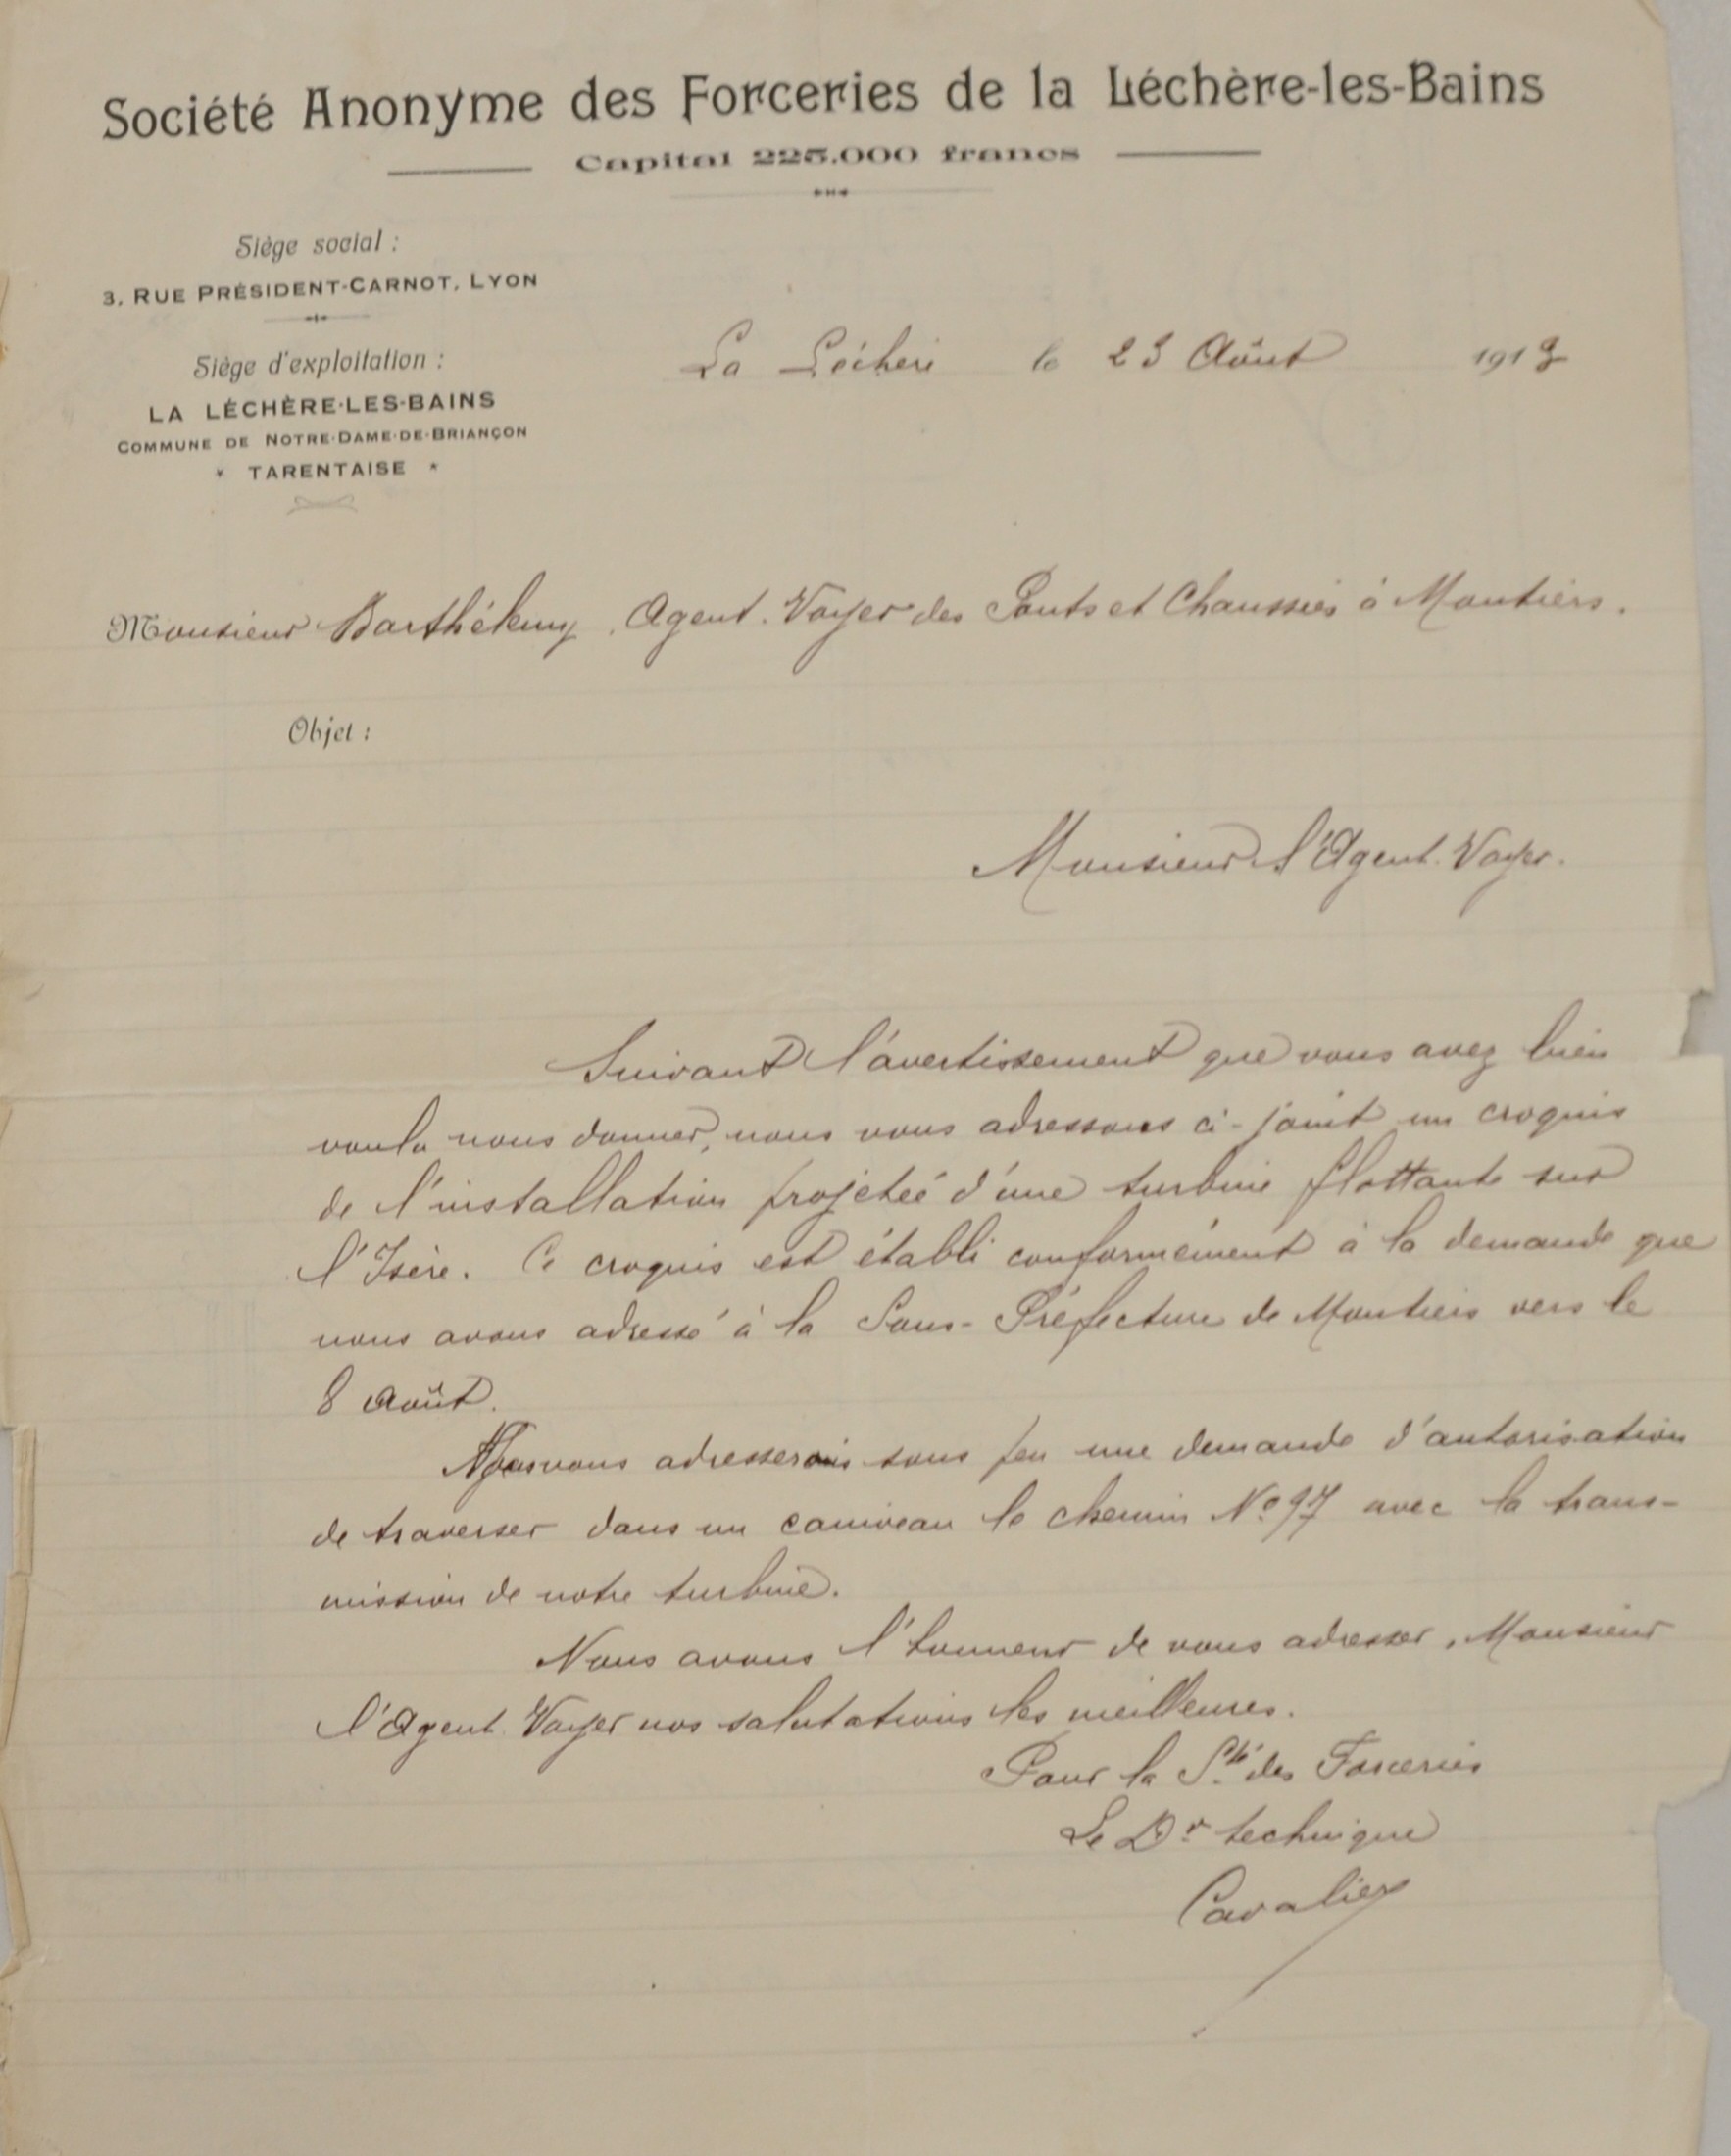 Société Anonyme des Forceries de la Léchère-les-Bains
Capital 225.000 francs
Siège social :
3, RUE PRÉSIDENT-CARNOT, LYON
Siège d'exploitation :
LA LÉCHÈRE-LES-BAINS
COMMUNE DE NOTRE-DAME-DE-BRIANÇON
* TARENTAISE *
La Léchère le 23 Août 191
Monsieur Barthélemy, Agent-Voyer des Ponts et Chaussées à Moutiers.
Objet :
Monsieur l'Agent-Voyer.
Suivant l'avertissement que vous avez bien
voulu nous donner, nous vous adressons ci-joint un croquis
de l'installation projetée d'une turbine flottante sur
l'Isère. Ce croquis est établi conformément à la demande que
nous avons adressé à la Sous-Préfecture de Moutiers vers le
8 Août.
Nous vous adresserons sous peu une demande d'autorisation
de traverser dans un caniveau le chemin No 97 avec la trans-
mission de notre turbine.
Nous avons l'honneur de vous adresser, Monsieur
l'Agent-Voyer nos salutations les meilleures.
Pour la Sté des Forceries
Le Dr technique
Cavalier